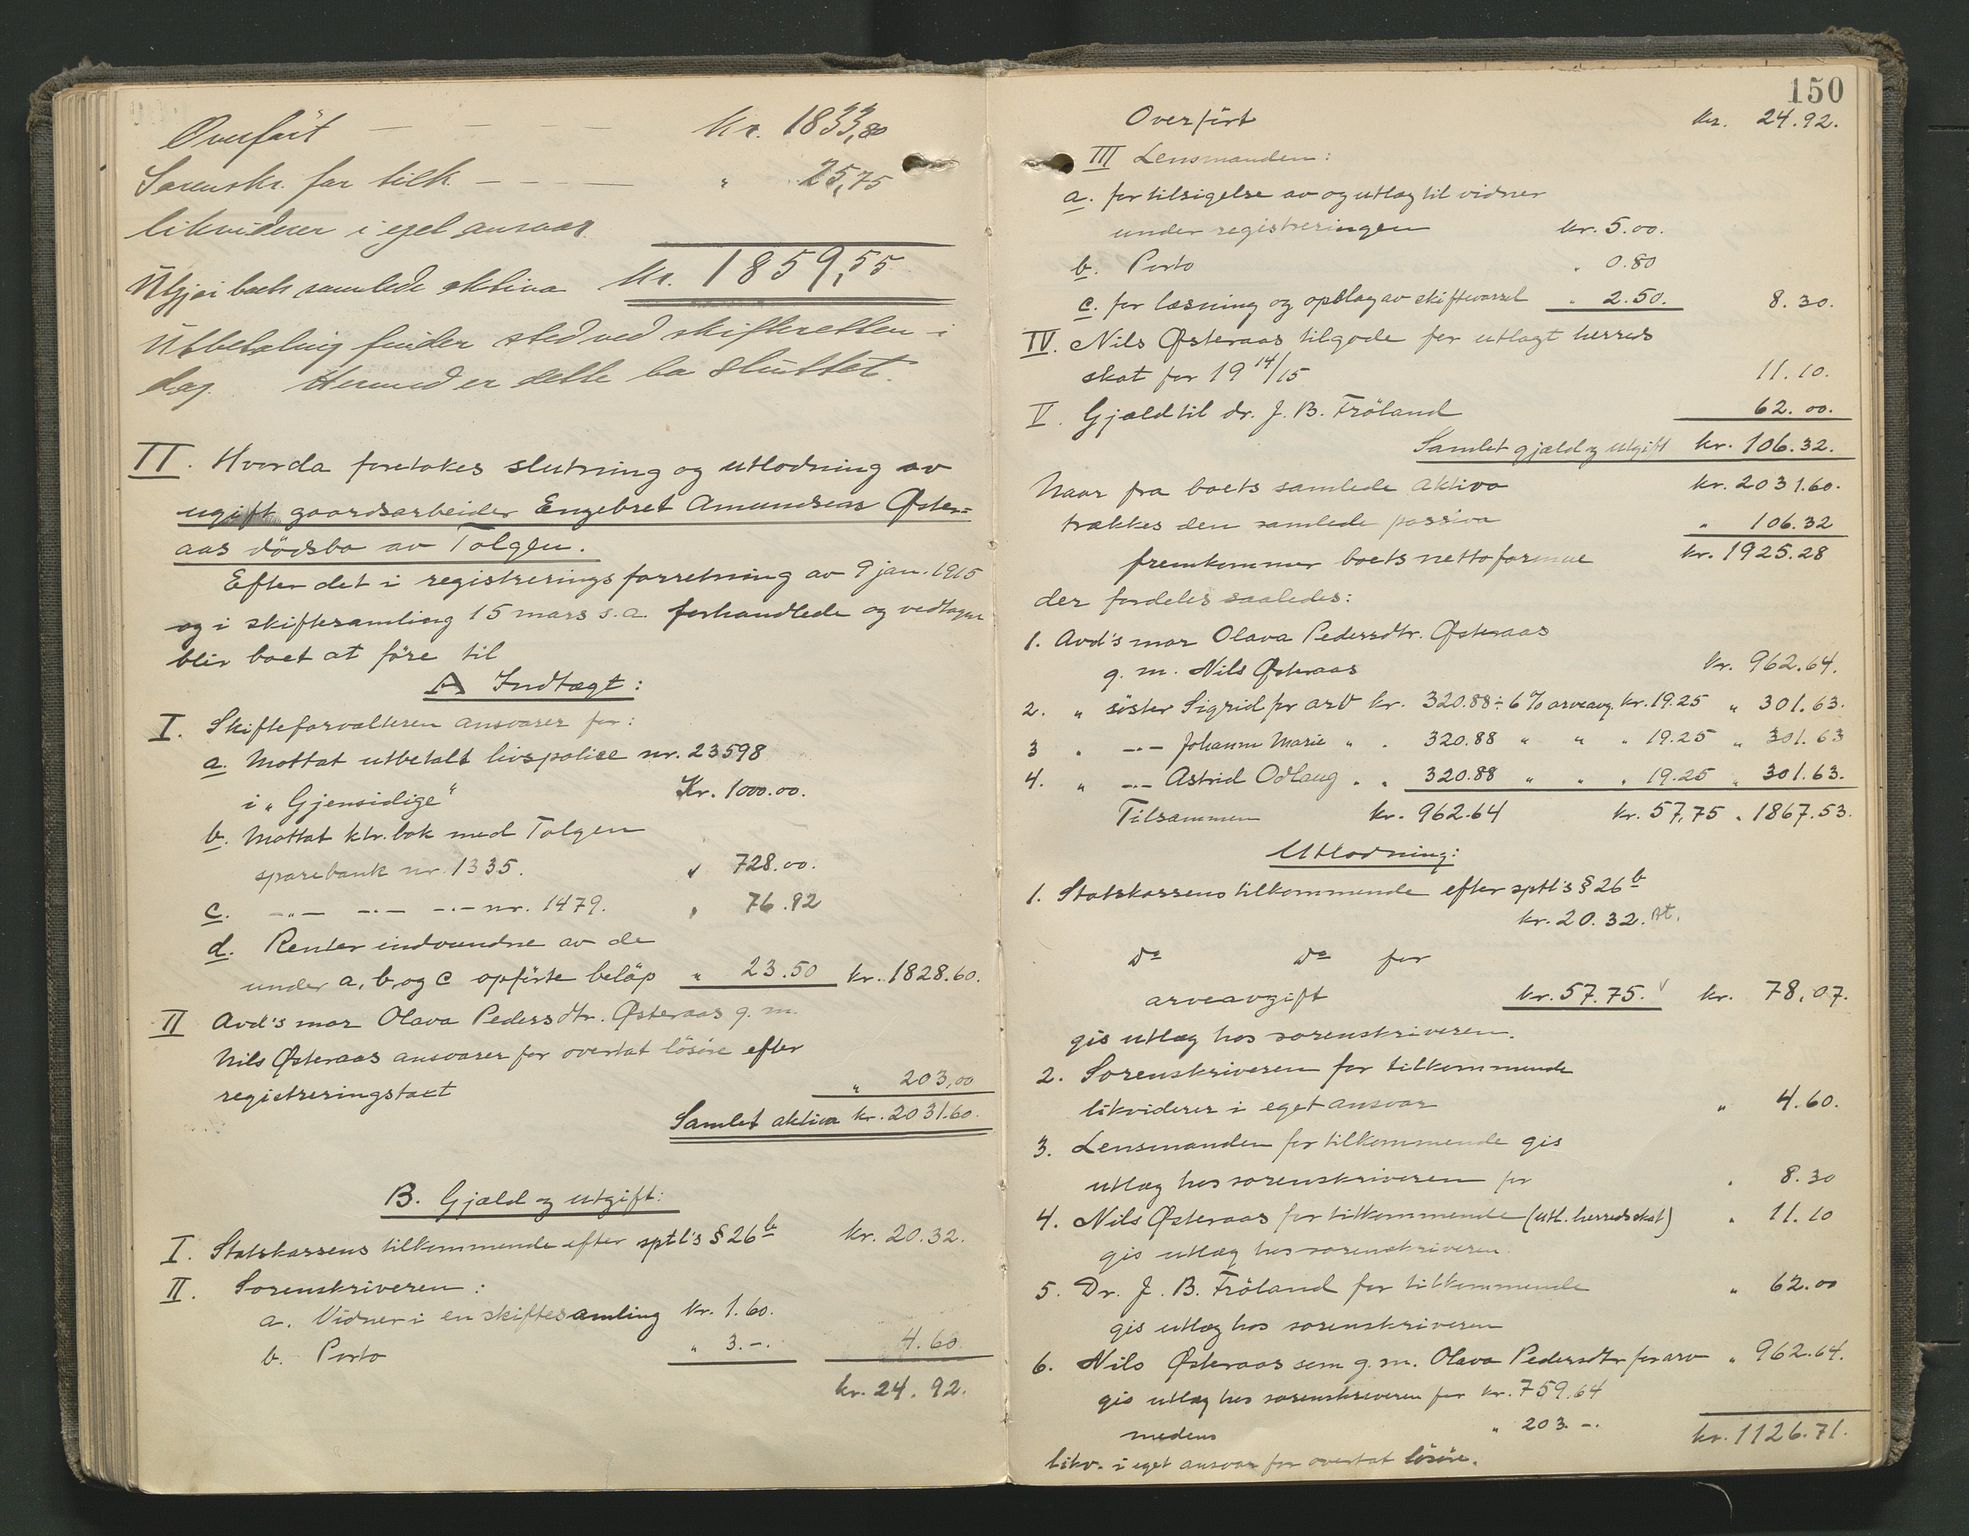 Overført — — — kr. 1833,80
Sorenskr. for tilk. — — — " 25,75
likviderer i eget ansvar.
Utgjør boets samlede aktiva kr. 1859,55
Utbetaling finder sted ved skifteretten i
dag. Hermed er dette bo sluttet.
II. Hvorda foretokes slutning og utlodning av
ugift gaardsarbeider Engebret Amundsen Øster=
aas dödsbo av Tolgen.
Efter det i registreringsforretning av 9 jan. 1915
og i skiftesamling 15 mars s.a. forhandlede og vedtagne
blir boet at före til
A Indtægt:
I. Skifteforvalteren ansvarer for:
a. Mottat utbetalt livspolise nr. 23598
i "Gjensidige" Kr. 1000.00.
b. Mottat ktr. bok med Tolgen
sparebank nr. 1335. " 728.00.
c. —"— —"— —"— nr. 1479. " 76.92
d. Renter indvundne av de
under a, b, og c opförte beløp " 23.50 kr. 1828.60.
II Avd's mor Olava Pedersdtr. Østeraas g. m.
Nils Østeraas ansvarer for overtat lösöre efter
registreringstaxt " 203,00
Samlet aktiva kr. 2031.60.
B. Gjæld og utgift:
I. Statskassens tilkommende efter sptl's § 26 b kr. 20.32.
II. Sorenskriveren:
a. Vidner i en skiftesamling kr. 1.60.
b. Porto " 3.-. 4.60
kr. 24.92.
150
Overfört kr. 24.92.
III Lensmanden:
a. for tilsigelse av og utlæg til vidner
under registreringen kr. 5.00.
b. Porto " 0.80
c. for læsning og opslag av skiftevarsel " 2.50. 8.30.
IV. Nils Østeraas tilgode for utlagt herreds
skat for 19 14/15 11.10.
V. Gjæld til dr. J. B. Fröland 62.00.
Samlet gjæld og utgift kr. 106.32.
Naar fra boets samlede aktiva kr. 2031.60.
trækkes den samlede passiva " 106.32
fremkommer boets nettoformue kr. 1925.28
der fordeles saaledes:
1. Avd's mor Olava Pedersdtr. Østeraas
g. m. Nils Østeraas kr. 962.64.
2. " söster Sigrid pr arv kr. 320.88 ÷ 6% arveavg. kr. 19.25 " 301.63.
3 " —"— Johanne Marie " " 320.88 " " " 19.25 " 301.63
4. " —"— Astrid Odlaug " " 320.88 " " " 19.25 " 301.63.
Tilsammen kr. 962.64 kr. 57,75 " 1867.53.
Utlodning:
1. Statskassens tilkommende efter sptl's § 26 b
kr. 20.32.
do do for
arveavgift kr. 57.75. kr. 78,07.
gis utlæg hos sorenskriveren.
2. Sorenskriveren for tilkommende
likviderer i eget ansvar " 4.60.
3. Lensmanden for tilkommende gis
utlæg hos sorenskriveren for " 8.30
4. Nils Østeraas for tilkommende (utl. herredsskat) " 11.10
gis utlæg hos sorenskriveren.
5. Dr. J. B. Fröland for tilkommende " 62.00
gis utlæg hos sorenskriveren
6. Nils Østeraas som g. m. Olava Pedersdtr for arv " 962.64.
gis utlæg hos sorenskriveren for kr. 759.64
medens " 203.-.
likv. i eget ansvar for overtat lösöre. kr. 1126.71.